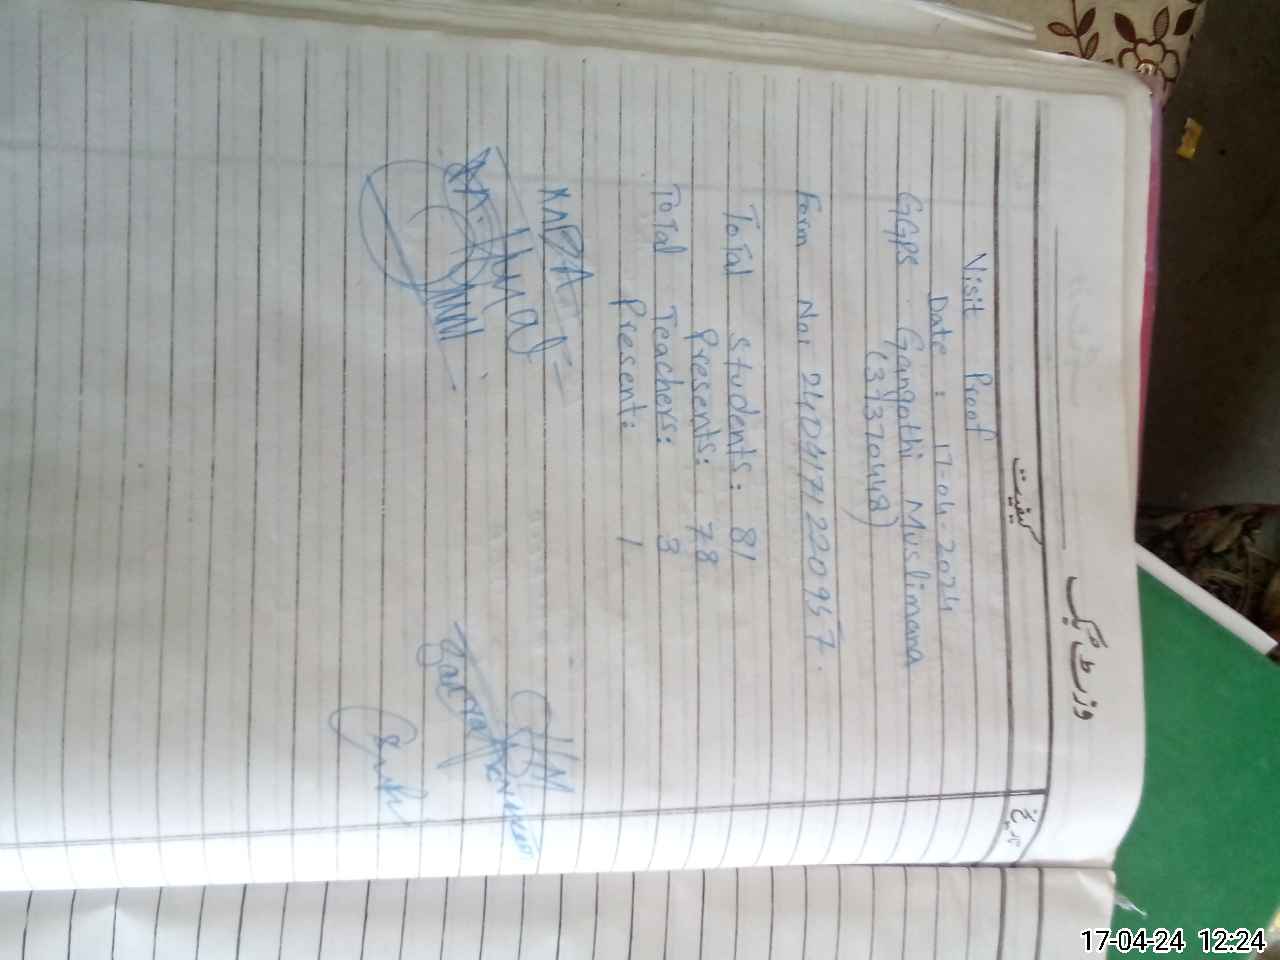 وزٹ بک
کیفیت
تاریخ
Visit Proof
Date : 17-04-2024
GGPS Gangothi Muslimana
(37370448)
Form No: 2404171220957.
ToTal students: 81
Presents: 78
ToTal Teachers: 3
Present: 1
17-04-24 12:24